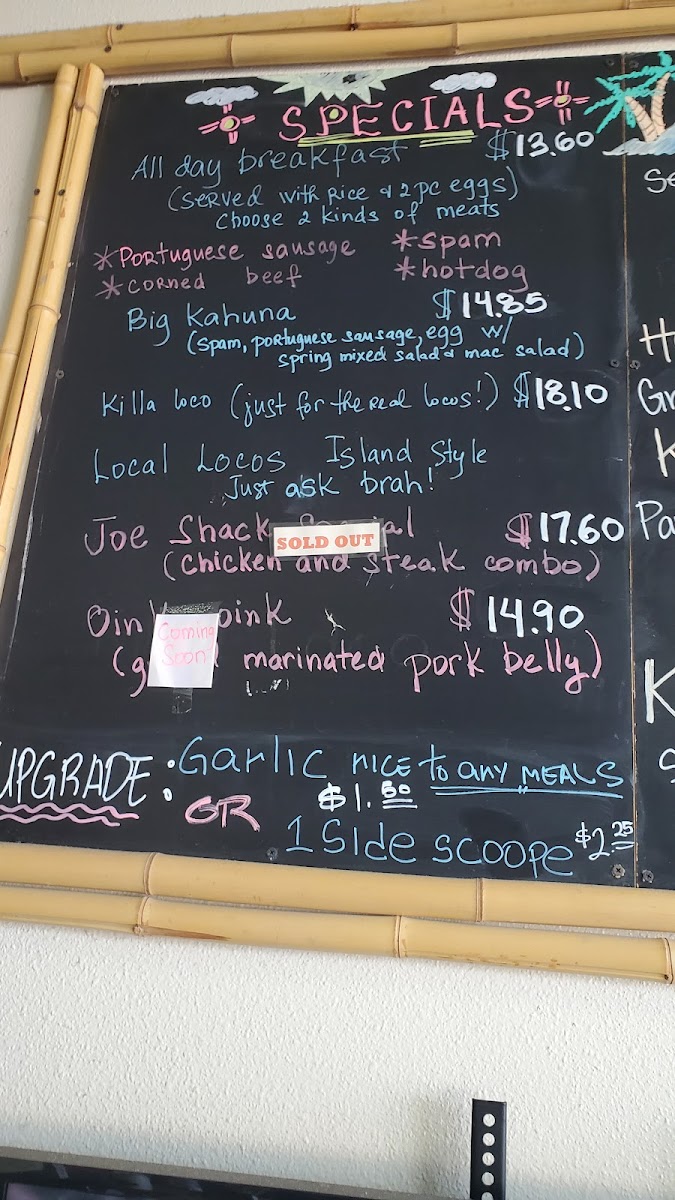 SPECIALS
All day breakfast $13.60
(served with Rice & 2 pc eggs)
Choose 2 kinds of meats
*Portuguese sausage *spam
*corned beef *hotdog
Big Kahuna $14.85
(spam, portuguese sausage, egg w/
spring mixed salad & mac salad)
Killa loco (just for the real locos!) $18.10
Local Locos Island Style
Just ask brah!
Joe Shack $17.60
SOLD OUT
(chicken and steak combo)
oink $14.90
Coming
Soon
marinated pork belly)
UPGRADE: Garlic rice to any MEALS
$1.50
OR
1 Side scoope $2.25
Se
H
Gr
K
Pa
K
S